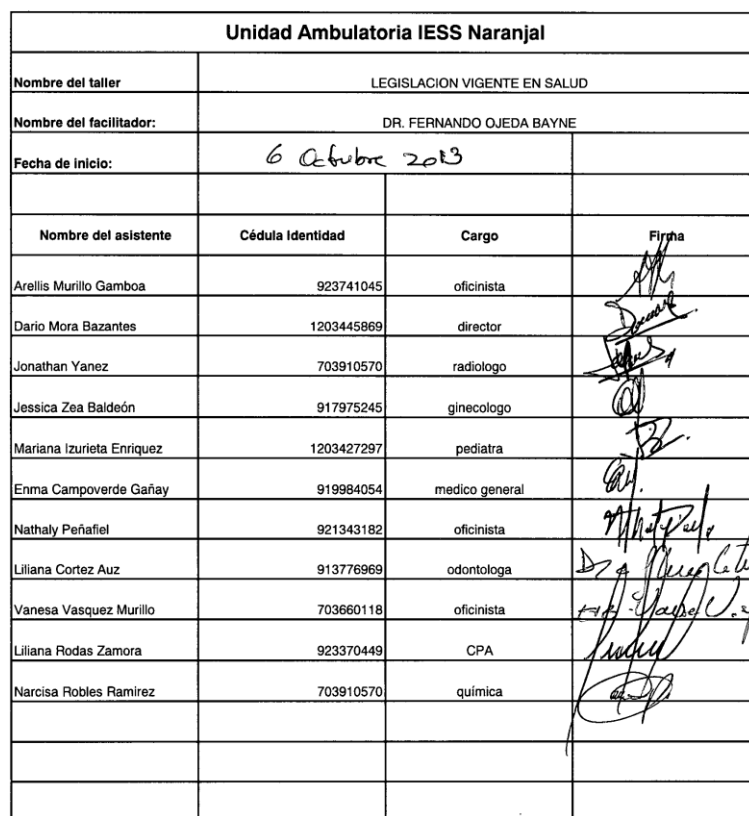 Unidad Ambulatoria IESS Naranjal
Nombre del taller LEGISLACION VIGENTE EN SALUD
Nombre del facilitador: DR. FERNANDO OJEDA BAYNE
Fecha de inicio: 6 Octubre 2013
Nombre del asistente Cédula Identidad Cargo Firma
Arellis Murillo Gamboa 923741045 oficinista
Dario Mora Bazantes 1203445869 director
Jonathan Yanez 703910570 radiologo
Jessica Zea Baldeón 917975245 ginecologo
Mariana Izurieta Enriquez 1203427297 pediatra
Enma Campoverde Gañay 919984054 medico general
Nathaly Peñafiel 921343182 oficinista
Liliana Cortez Auz 913776969 odontologa
Vanesa Vasquez Murillo 703660118 oficinista
Liliana Rodas Zamora 923370449 CPA
Narcisa Robles Ramirez 703910570 química